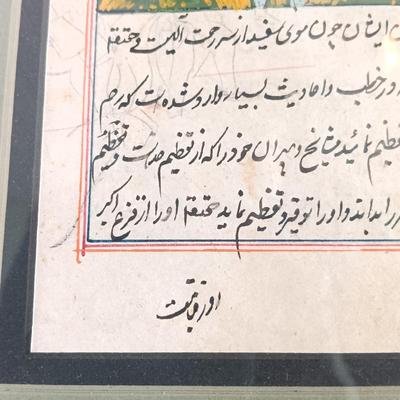 ایشان چون موی سفید از سر رحمت آلهیت و حقتعا
و در خطب و احادیث بسیار وارد شده است که رحم
تعظیم نمائید مشایخ و پیران خود را که از تعظیم خداست و تعظیم
را بداند و او را توقیر و تعظیم نماید حقتعا او را از فزع اکبر
روز قیامت